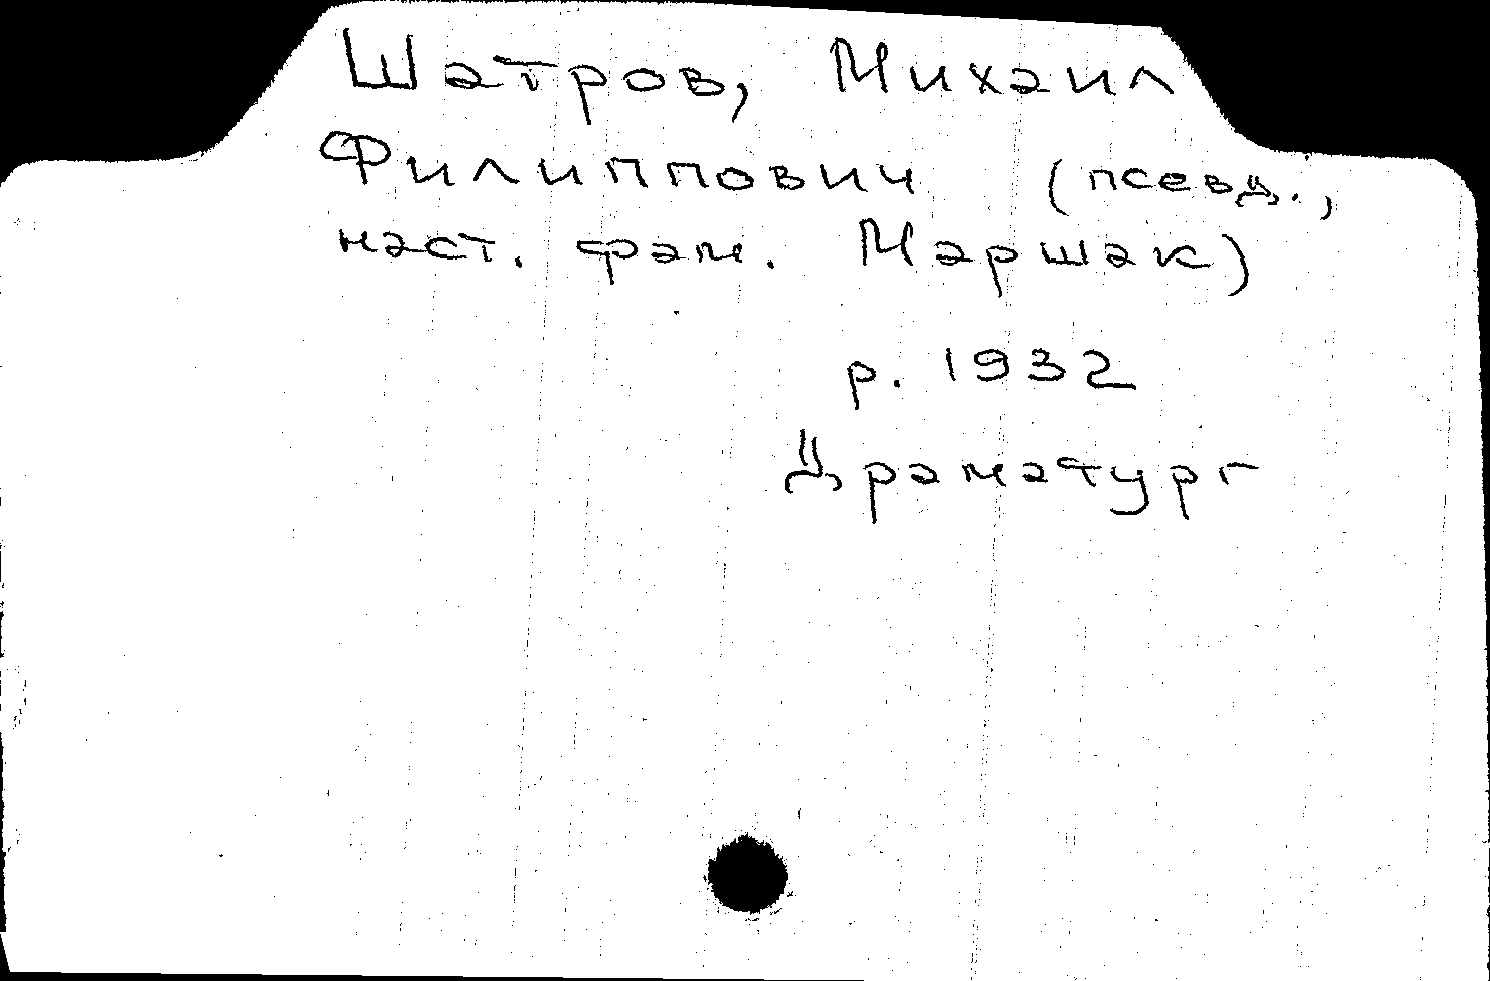 Шатров, Михаил
Филиппович (псевд.,
наст. фам. Маршак)
р. 1932
Драматург